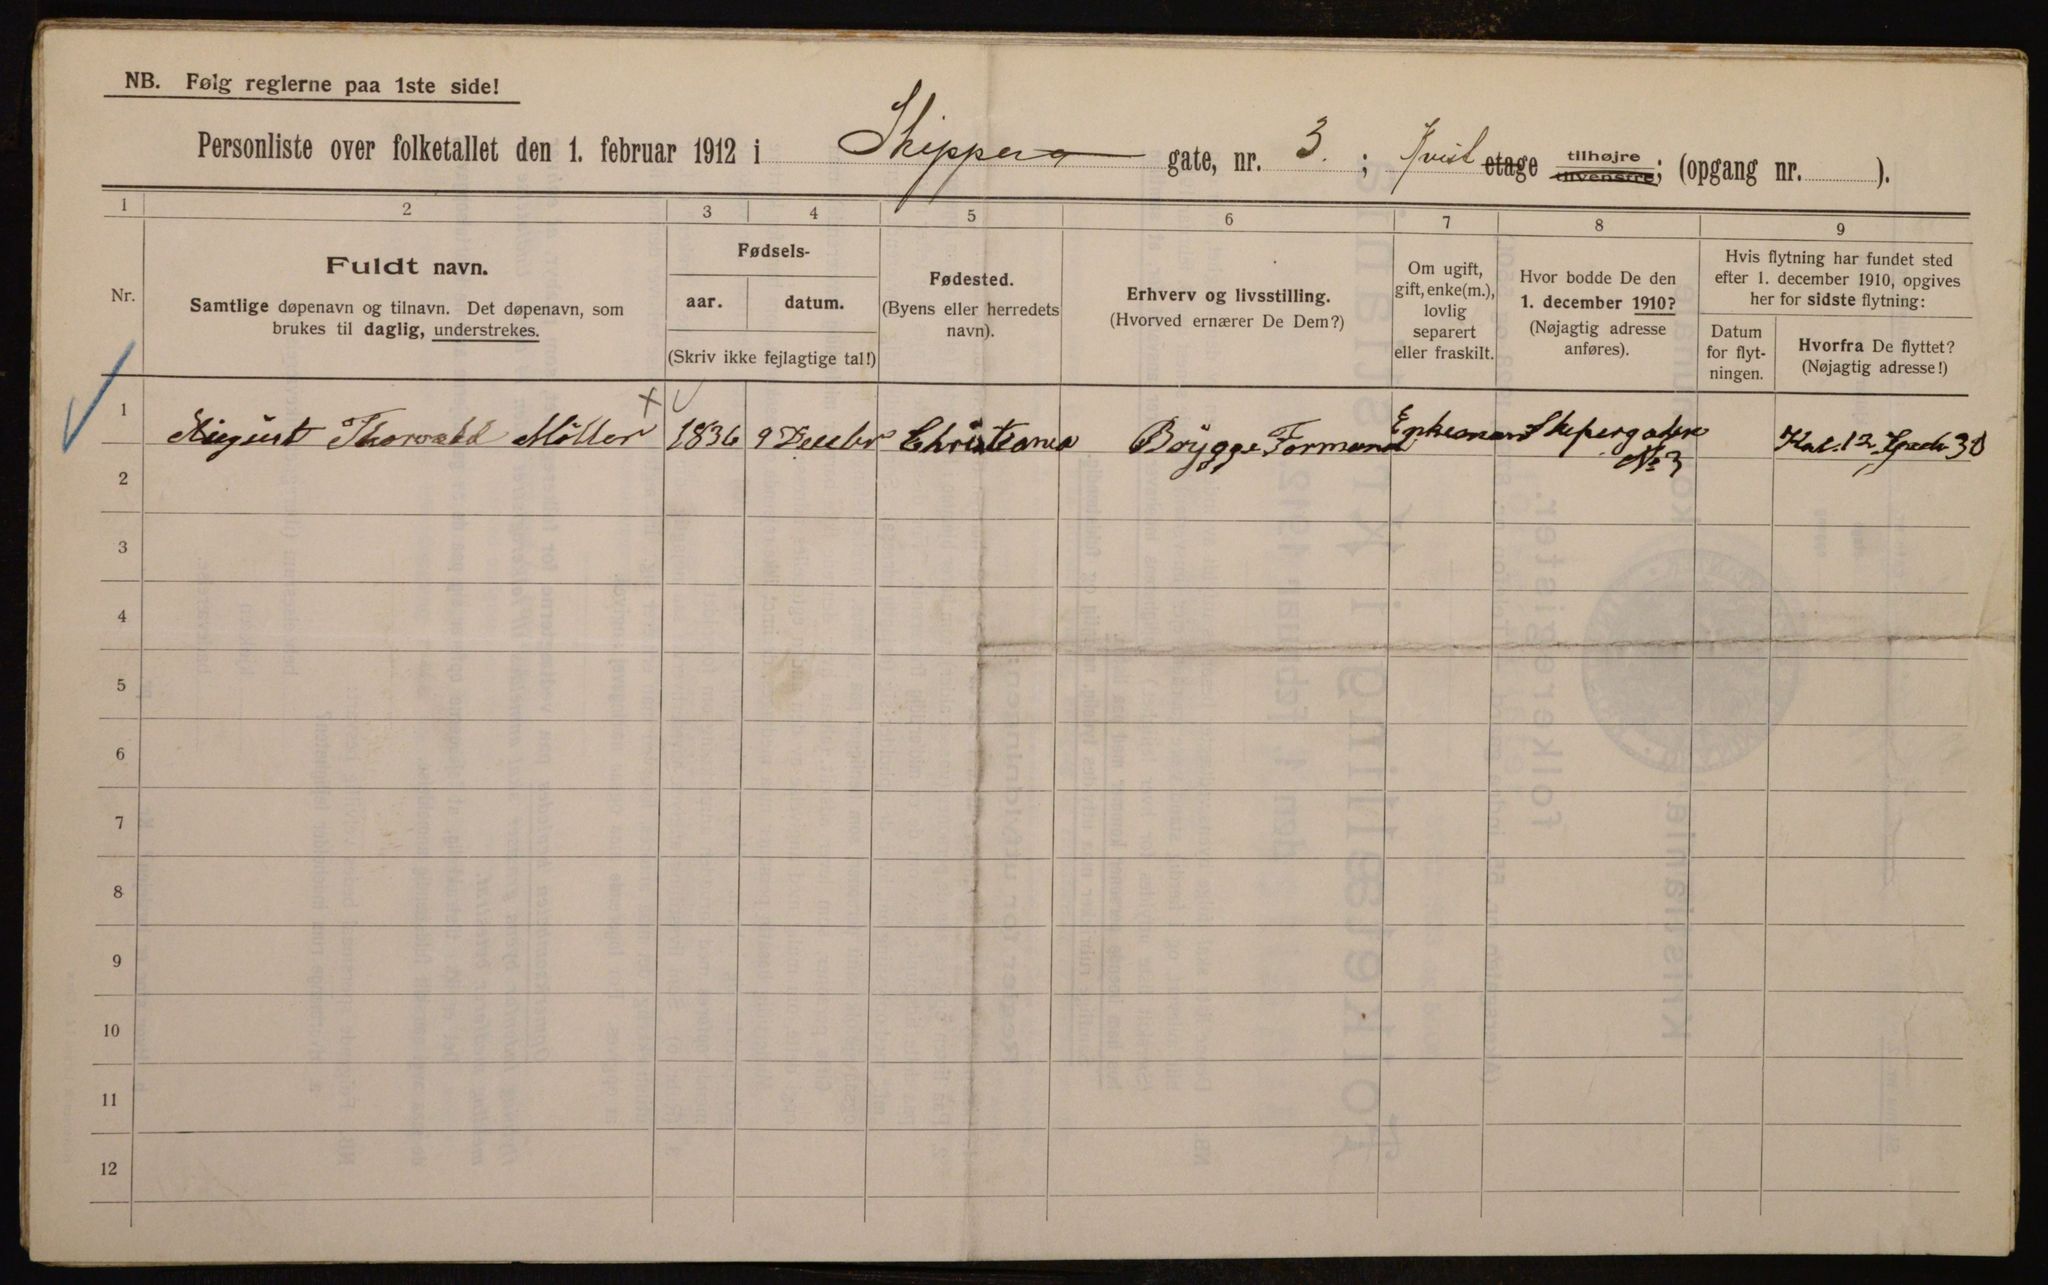 NB. Følg reglerne paa 1ste side!
Personliste over folketallet den 1. februar 1912 i Skipper gate, nr. 3. ; Kvist etage tilhøjre tilvenstre; (opgang nr. ).
1 2 3 4 5 6 7 8 9
Nr.
Fuldt navn.
Samtlige døpenavn og tilnavn. Det døpenavn, som
brukes til daglig, understrekes.
Fødsels-
aar. datum.
(Skriv ikke fejlagtige tal!)
Fødested.
(Byens eller herredets
navn).
Erhverv og livsstilling.
(Hvorved ernærer De Dem?)
Om ugift,
gift, enke(m.),
lovlig
separert
eller fraskilt.
Hvor bodde De den
1. december 1910?
(Nøjagtig adresse
anføres).
Hvis flytning har fundet sted
efter 1. december 1910, opgives
her for sidste flytning:
Datum
for flyt-
ningen.
Hvorfra De flyttet?
(Nøjagtig adresse!)
1 August Thorvald Möller 1836 9 Christiania Brygge Formand Skipergaten
No 3
2
3
4
5
6
7
8
9
10
11
12